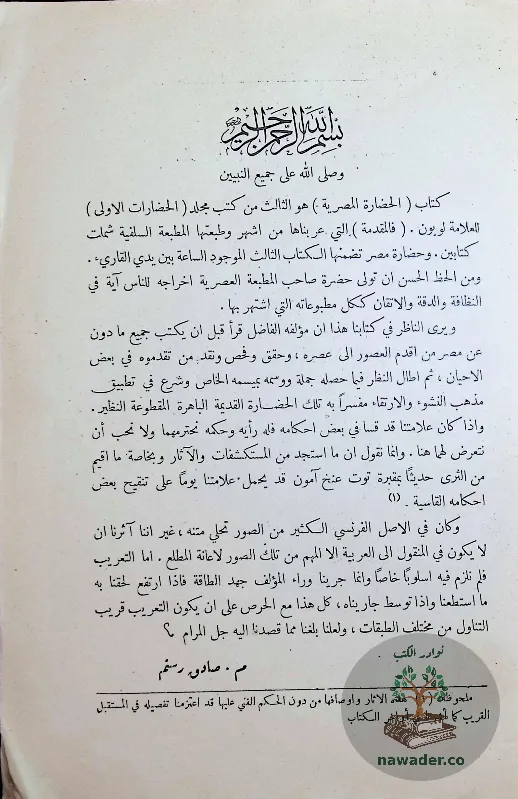 بسم الله الرحمن الرحيم
وصلى الله على جميع النبيين
كتاب ( الحضارة المصرية ) هو الثالث من كتب مجلد ( الحضارات الاولى )
للعلامة لوبون . ( فالمقدمة ) التي عربناها من اشهر وطبعتها المطبعة السلفية شملت
كتابين . وحضارة مصر تضمنها الكتاب الثالث الموجود الساعة بين يدي القاريء .
ومن الحظ الحسن ان تولى حضرة صاحب المطبعة العصرية اخراجه للناس آية في
النظافة والدقة والاتقان ككل مطبوعاته التي اشتهر بها .
ويرى الناظر في كتابنا هذا ان مؤلفه الفاضل قرأ قبل ان يكتب جميع ما دون
عن مصر من اقدم العصور الى عصره ، وحقق وفحص ونقد من تقدموه في بعض
الاحيان ، ثم اطال النظر فيما حصله جملة ووسمه بميسمه الخاص وشرع في تطبيق
مذهب النشوء والارتقاء مفسراً به تلك الحضارة القديمة الباهرة المقطوعة النظير .
واذا كان علامتنا قد قسا في بعض احكامه فله رأيه وحكمه نحترمهما ولا نحب أن
نتعرض لهما هنا . وانما نقول ان ما استجد من المستكشفات والآثار وبخاصة ما اقيم
من الثرى حديثاً بمقبرة توت عنخ آمون قد يحمل علامتنا يوماً على تنقيح بعض
احكامه القاسية . (١)
وكان في الاصل الفرنسي الكثير من الصور تحلي متنه ، غير اننا آثرنا ان
لا يكون في المنقول الى العربية الا المهم من تلك الصور لاعانة المطلع . اما التعريب
فلم نلزم فيه اسلوباً خاصاً وانما جرينا وراء المؤلف جهد الطاقة فاذا ارتفع لحقنا به
ما استطعنا واذا توسط جاريناه ، كل هذا مع الحرص على ان يكون التعريب قريب
التناول من مختلف الطبقات ، ولعلنا بلغنا مما قصدنا اليه جل المرام
م . صادق رستم
ملحوظة الآثار واوصافها من دون الحكم الفني عليها قد اعتزمنا تفصيله في المستقبل
القريب كما الكتاب
نوادر الكتب
nawader.co